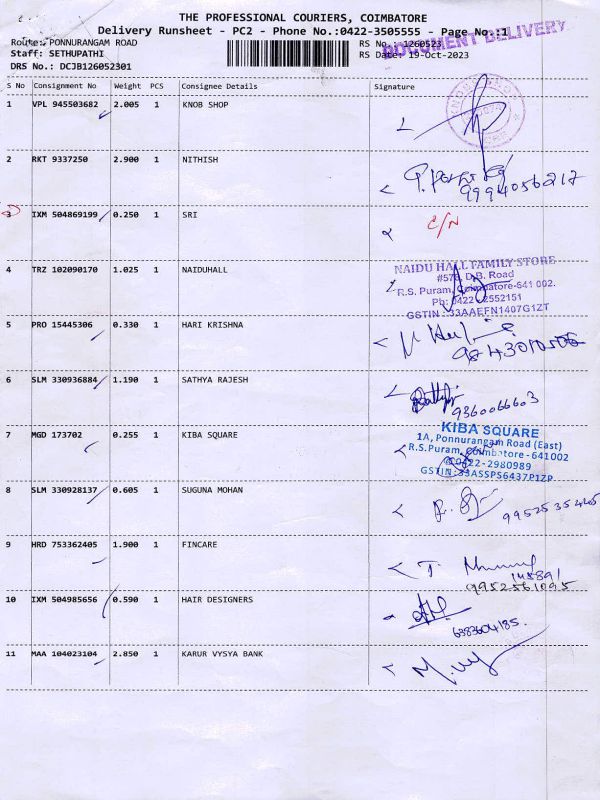 THE PROFESSIONAL COURIERS, COIMBATORE
Delivery Runsheet - PC2 - Phone No.:0422-3505555 - Page No.:1
Route: PONNURANGAM ROAD
RS No.: 1260523
DOCUMENT DELIVERY
Staff: SETHUPATHI
RS Date: 19-Oct-2023
DRS No.: DCJB126052301
S No Consignment No Weight PCS Consignee Details Signature
1 VPL 945503682 2.005 1 KNOB SHOP
2 RKT 9337250 2.900 1 NITHISH
9994056217
3 IXM 504869199 0.250 1 SRI C/N
4 TRZ 102090170 1.025 1 NAIDUHALL
NAIDU HALL FAMILY STORE
D.B. Road
R.S. Puram, Coimbatore-641 002.
Ph: 0422 2552151
GSTIN : 33AAEFN1407G1ZT
5 PRO 15445306 0.330 1 HARI KRISHNA
6 SLM 330936884 1.190 1 SATHYA RAJESH
9360066603
7 MGD 173702 0.255 1 KIBA SQUARE
KIBA SQUARE
1A, Ponnurangam Road (East)
R.S.Puram, Coimbatore - 641002
0422-2980989
GSTIN:33ASSPS6437P1ZP
8 SLM 330928137 0.605 1 SUGUNA MOHAN
9 HRD 753362405 1.900 1 FINCARE
10 IXM 504985656 0.590 1 HAIR DESIGNERS
6383604185.
11 MAA 104023104 2.850 1 KARUR VYSYA BANK